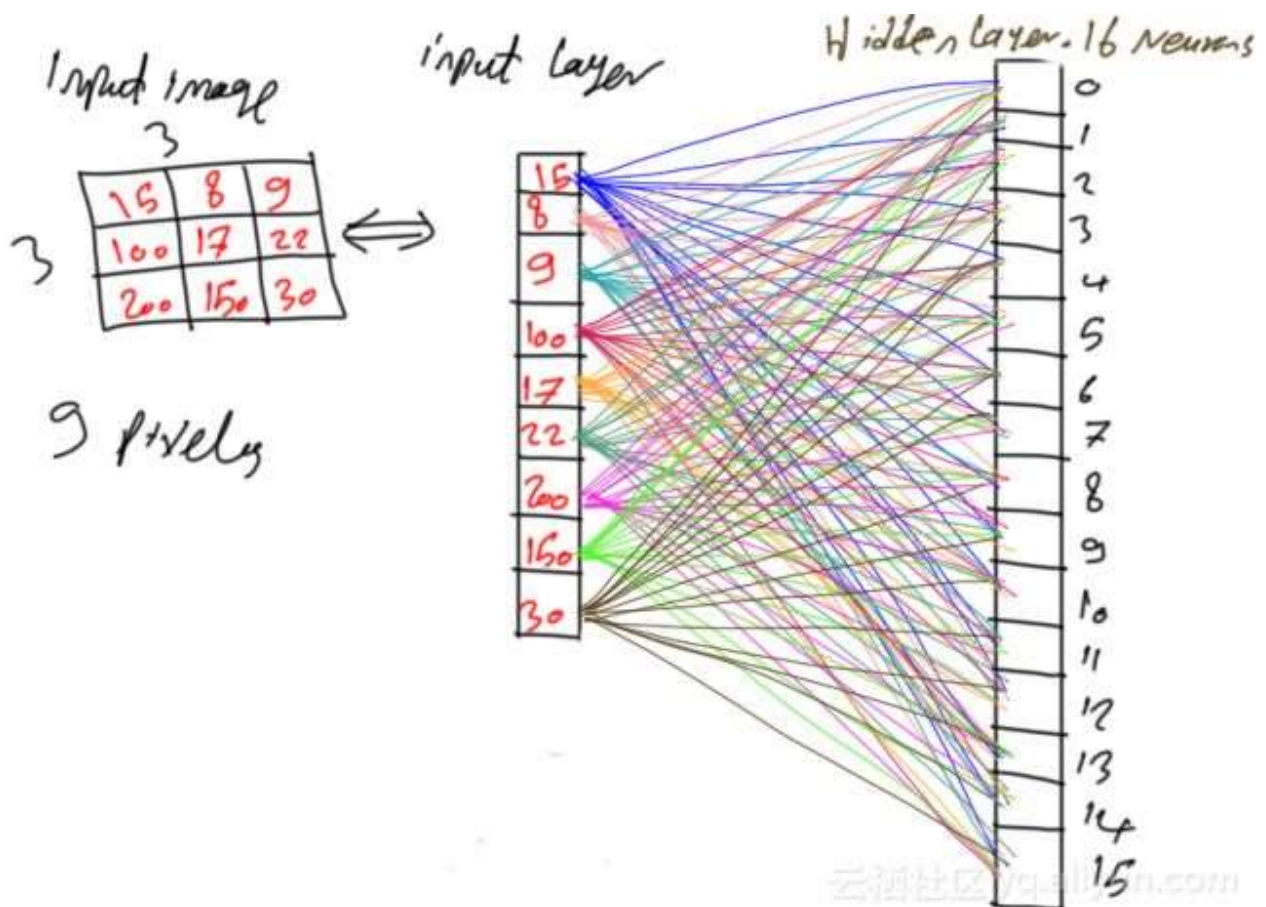 Input image
3
3
15 8 9
100 17 22
200 150 30
9 Pixels
input Layer
15
8
9
100
17
22
200
150
30
Hidden Layer. 16 Neurons
0
1
2
3
4
5
6
7
8
9
10
11
12
13
14
15
云栖社区 yq.aliyun.com